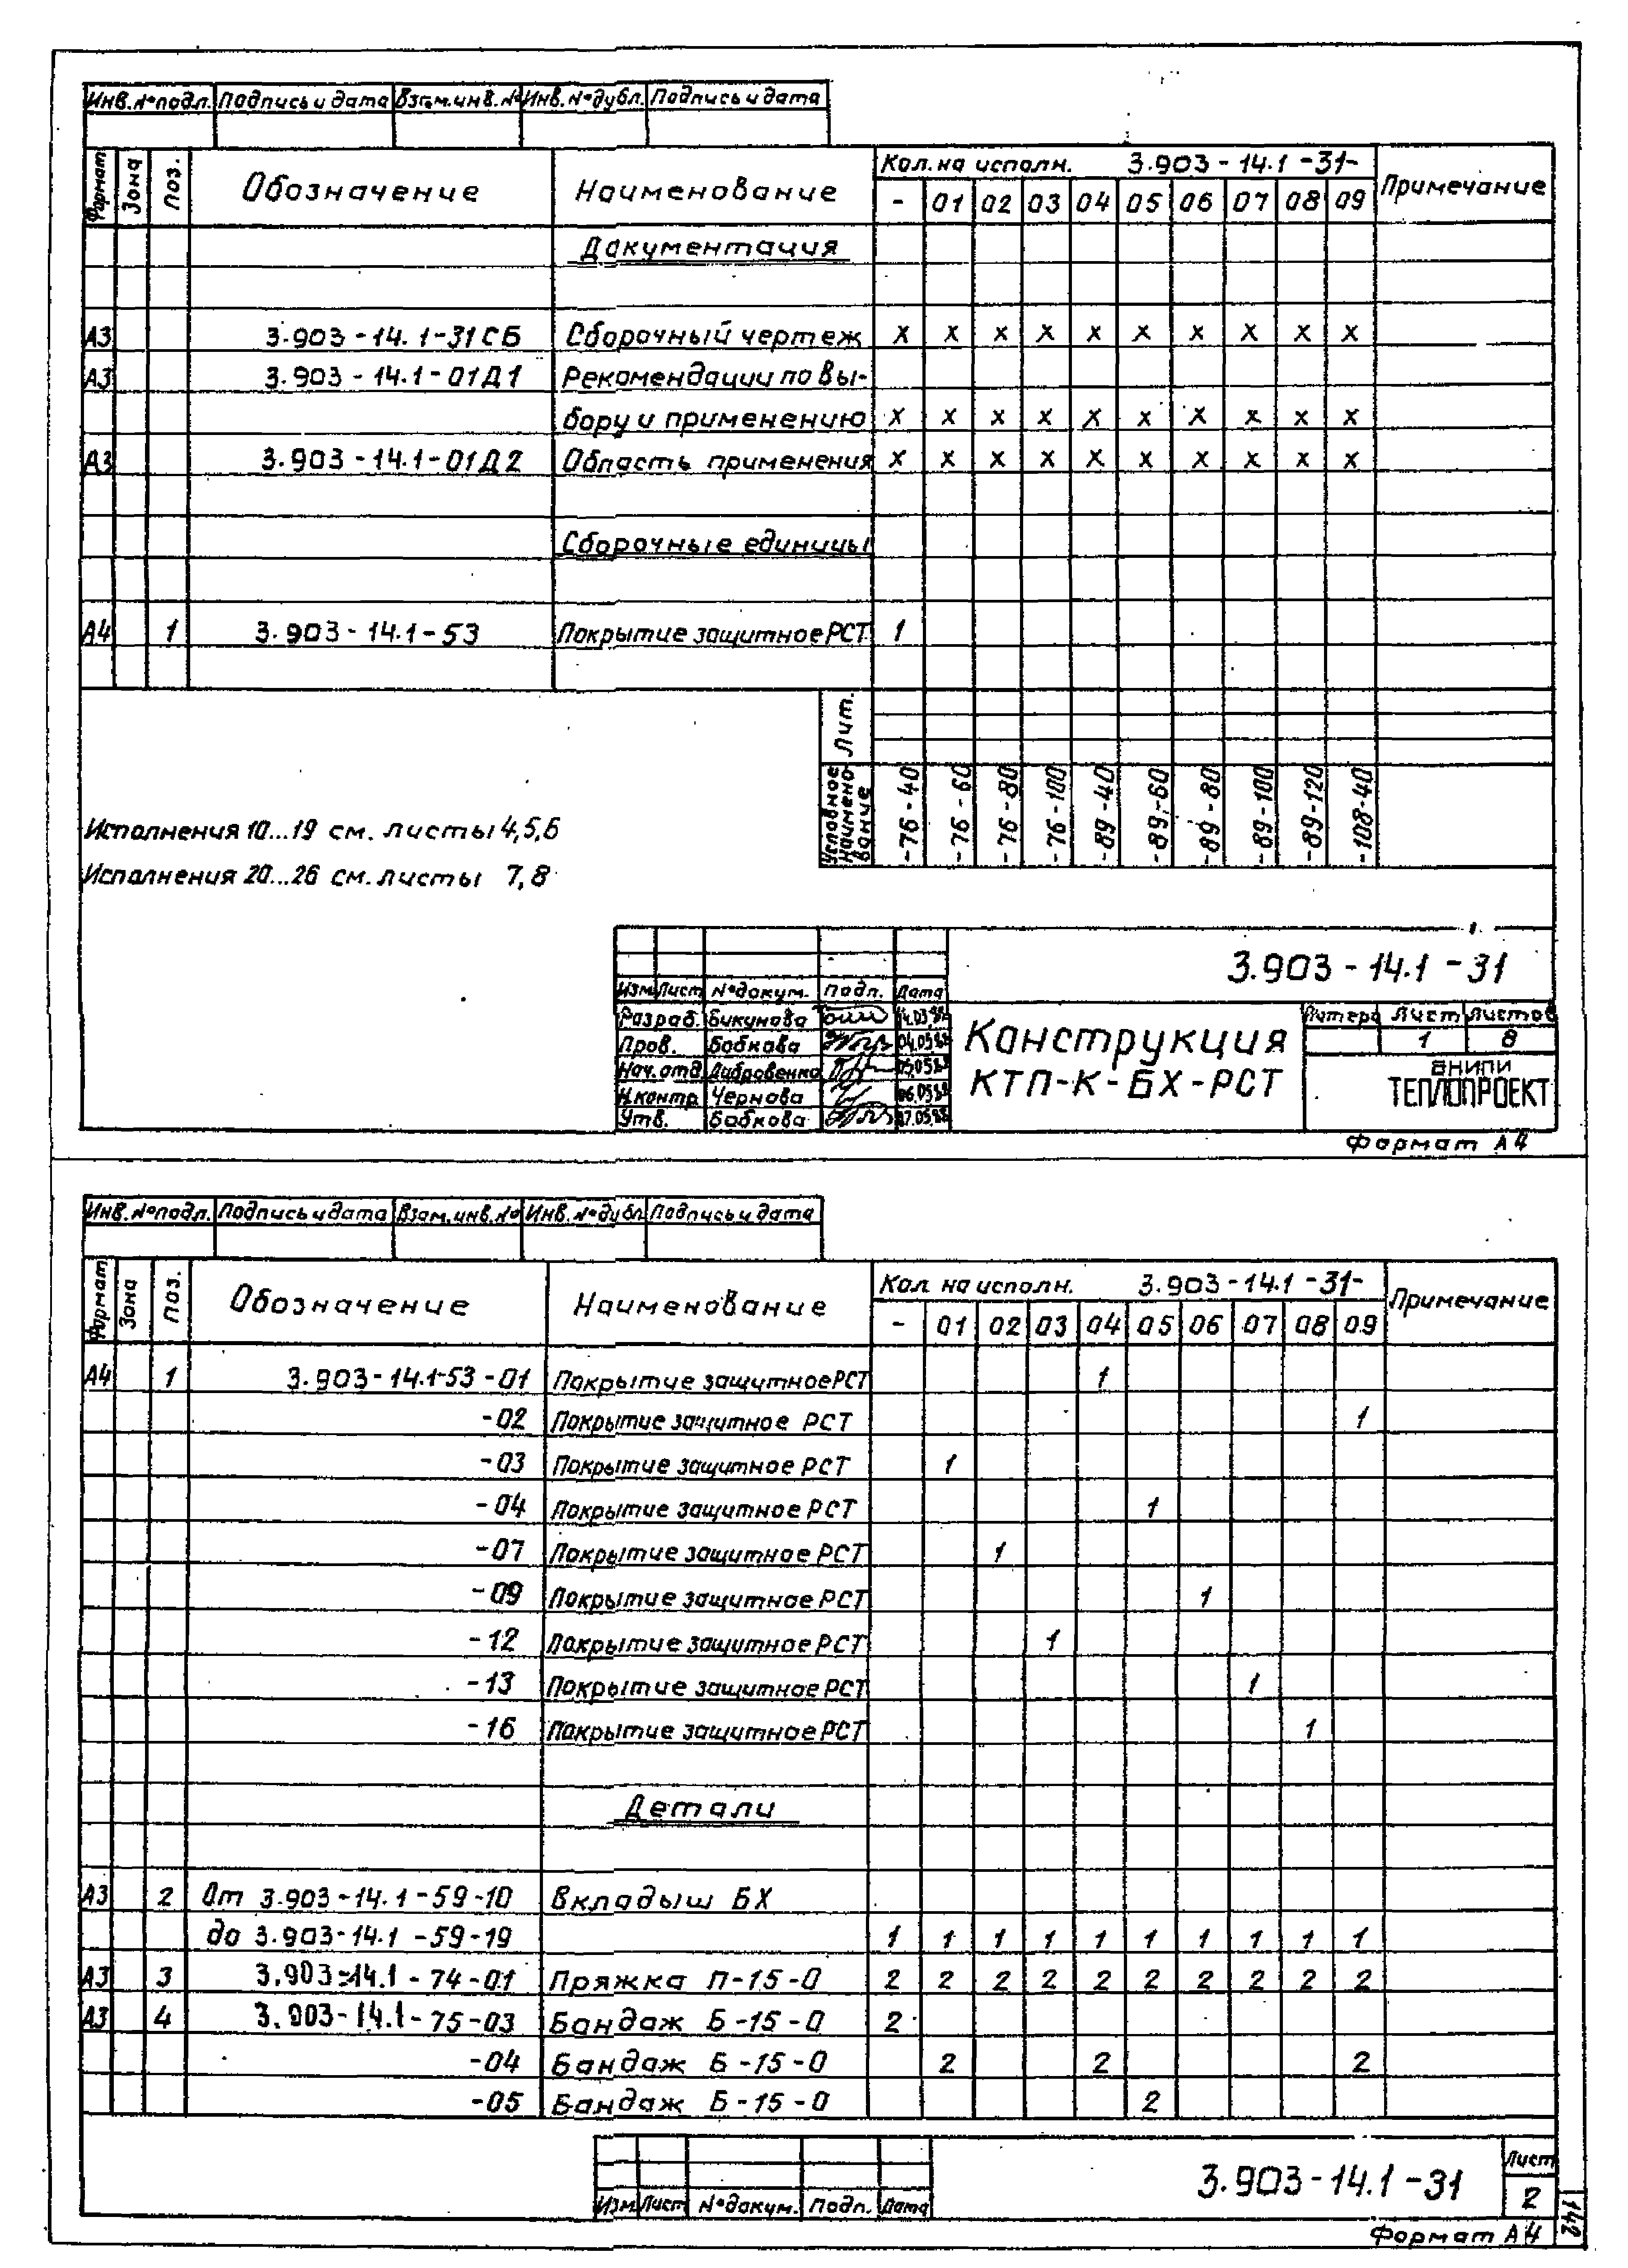 Инв.№подл. Подпись и дата Взам.инв.№ Инв.№дубл. Подпись и дата
Формат Зона Поз. Обозначение Наименование Кол. на исполн. 3.903-14.1-31- Примечание
- 01 02 03 04 05 06 07 08 09
Документация
А3 3.903-14.1-31СБ Сборочный чертеж х х х х х х х х х х
А3 3.903-14.1-01Д1 Рекомендации по вы-
бору и применению х х х х х х х х х х
А3 3.903-14.1-01Д2 Область применения х х х х х х х х х х
Сборочные единицы
А4 1 3.903-14.1-53 Покрытие защитное РСТ 1
Лит.
Условное наимено вание -76-40 -76-60 -76-80 -76-100 -89-40 -89-60 -89-80 -89-100 -89-120 -108-40
Исполнения 10...19 см. листы 4,5,6
Исполнения 20...26 см. листы 7,8
3.903-14.1-31
Изм. Лист №докум. Подп. Дата
Разраб. Бикунова
Пров. Бобкова
Нач.отд. Дибровенко
Н.контр. Чернова
Утв. Бобкова
Конструкция
КТП-К-БХ-РСТ
Литера Лист Листов
1 8
ВНИПИ
ТЕПЛОПРОЕКТ
Формат А4
Инв.№подл. Подпись и дата Взам.инв.№ Инв.№дубл. Подпись и дата
Формат Зона Поз. Обозначение Наименование Кол. на исполн. 3.903-14.1-31- Примечание
- 01 02 03 04 05 06 07 08 09
А4 1 3.903-14.1-53-01 Покрытие защитное РСТ 1
-02 Покрытие защитное РСТ 1
-03 Покрытие защитное РСТ 1
-04 Покрытие защитное РСТ 1
-07 Покрытие защитное РСТ 1
-09 Покрытие защитное РСТ 1
-12 Покрытие защитное РСТ 1
-13 Покрытие защитное РСТ 1
-16 Покрытие защитное РСТ 1
Детали
А3 2 От 3.903-14.1-59-10 Вкладыш БХ
до 3.903-14.1-59-19 1 1 1 1 1 1 1 1 1 1
А3 3 3.903-14.1-74-01 Пряжка П-15-0 2 2 2 2 2 2 2 2 2 2
А3 4 3.903-14.1-75-03 Бандаж Б-15-0 2
-04 Бандаж Б-15-0 2 2 2
-05 Бандаж Б-15-0 2
Изм. Лист №докум. Подп. Дата
3.903-14.1-31
Лист
2
142
Формат А4